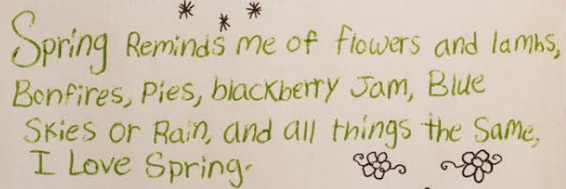 Spring Reminds me of flowers and lambs,
Bonfires, Pies, blackberry Jam, Blue
Skies or Rain, and all things the Same,
I Love Spring.